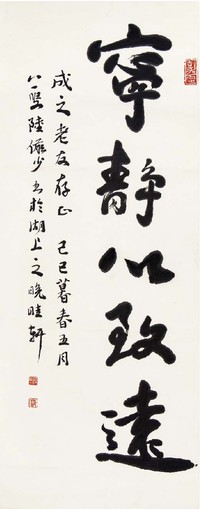 寧靜以致遠
成之老友存正 己巳暮春五月
八一叟陸儼少書於湖上之晚晴軒